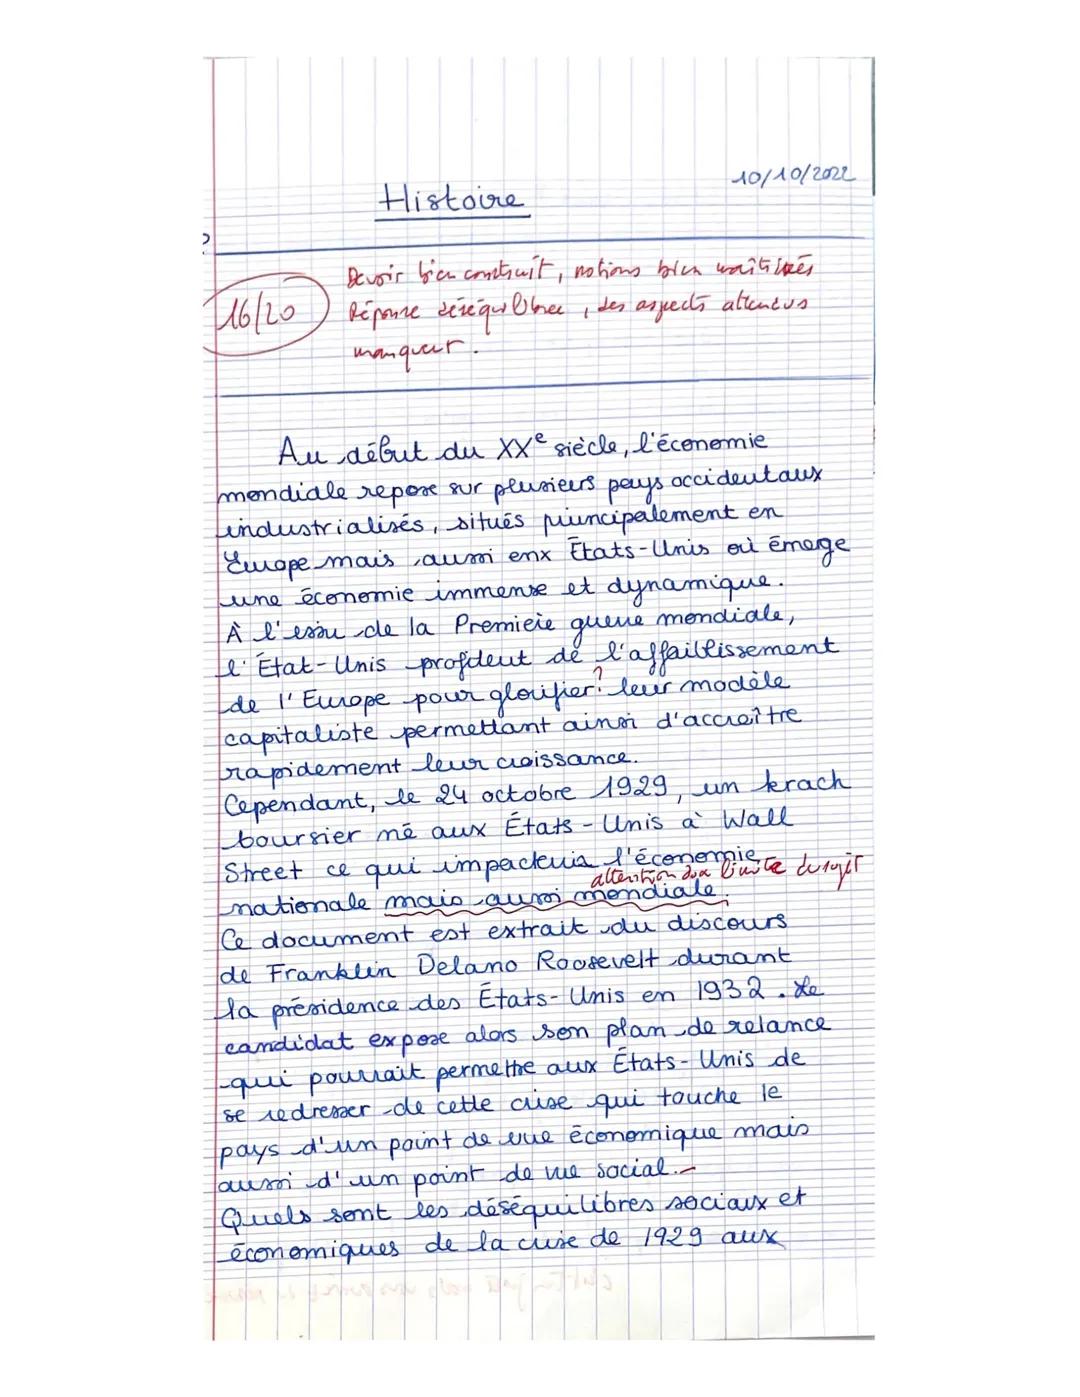 10/10/2022
Histoire
16/20
Devoir bien construit, notions bien maîtrisées
Réponse déséquilibrée, des aspects attendus
manquent.
Au début du XXe siècle, l'économie
mondiale repose sur plusieurs pays occidentaux
industrialisés, situés principalement en
Europe mais aussi enx États-Unis où émerge
une économie immense et dynamique.
À l'essu de la Première guerre mondiale,
l'État-Unis profitent de l'affaiblissement
de l'Europe pour glorifier? leur modèle
capitaliste permettant ainsi d'accroître
rapidement leur croissance.
Cependant, le 24 octobre 1929, un krach
boursier né aux États-Unis à Wall
Street ce qui impactera l'économie
attention aux limite du sujet
nationale mais aussi mondiale.
Ce document est extrait du discours
de Franklin Delano Roosevelt durant
la présidence des États-Unis en 1932. Le
candidat expose alors son plan de relance
qui pourrait permettre aux États-Unis de
se redresser de cette crise qui touche le
pays d'un point de vue économique mais
aussi d'un point de vue social.
Quels sont les déséquilibres sociaux et
économiques de la crise de 1929 aux